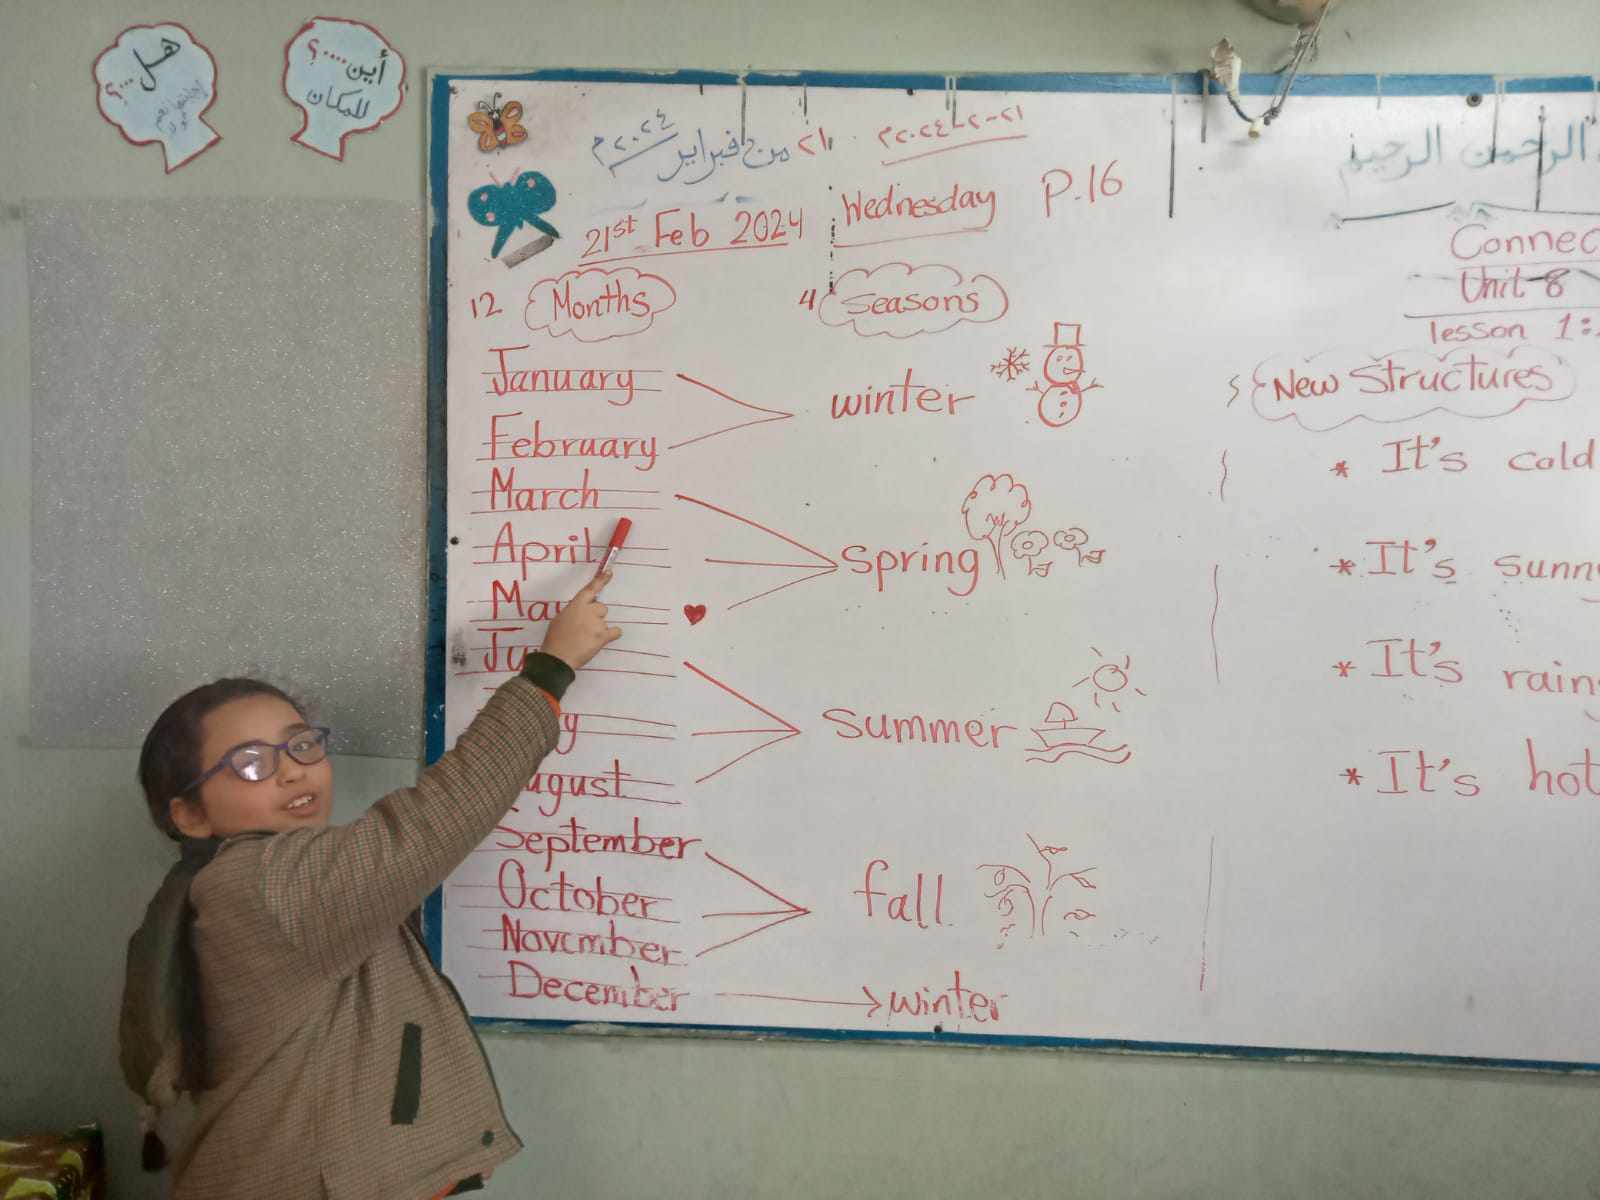 هل ....؟
أين ....؟
للمكان
٢١ من فبراير ٢٠٢٤م
٢١-٢-٢٠٢٤م
الرحمن الرحيم
21st Feb 2024 Wednesday P.16
Connec
Unit 8
lesson 1:
12 Months
4 Seasons
New Structures
January
February
winter
March
April
May
spring
Ju
y
ugust
summer
September
October
November
fall
December
winter
* It's cold
* It's sunn
* It's rain
* It's hot